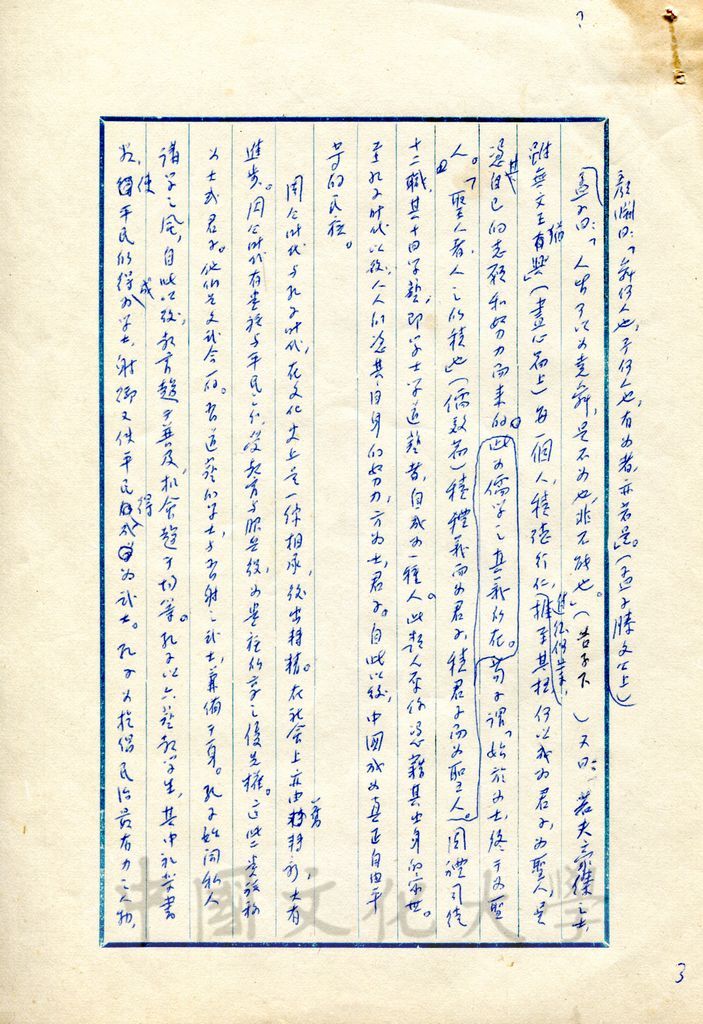 顏淵曰：「舜何人也，予何人也，有為者，亦若是。」（孟子滕文公上）
孟子曰：「人皆可以為堯舜，是不為也，非不能也。」（告子下）又曰：「若夫豪傑之士，
雖無文王猶興」（盡心篇上）每一個人，積德行仁，推至其極，何以成為君子，為聖人，是
憑自己的志願和努力而來的。此為儒學之真義所在。荀子謂「始於為士，終于為聖
人。」「聖人者，人之所積也」（儒效篇）積禮義而為君子，積君子而為聖人。周禮司徒
十二職，其十曰學藝，即學士學道藝者，自成為一種人。此類人不能憑藉其出身的家世。
至孔子時代以後，人人能憑其自身的努力，方為士，君子。自此以後，中國成為真正自由平
等的民族。
周公時代與孔子時代，在文化史上是一脈相承，後出轉精。在社會上亦由舊轉新，大有
進步。周公時代有貴族與平民之分，受教育與服兵役，為貴族所享之優先權。這些貴族稱
為士或君子。他們是文武合一的。習道藝的學士，與習射之武士，兼備于一身。孔子始開私人
講學之風，自此以後，教育趨于普及，機會趨于均等。孔子以六藝教學生，其中禮樂書
數，使平民能得成為學士，射御又使平民得成為武士。孔子為提倡民治最有力之人物，
3
中國文化大學